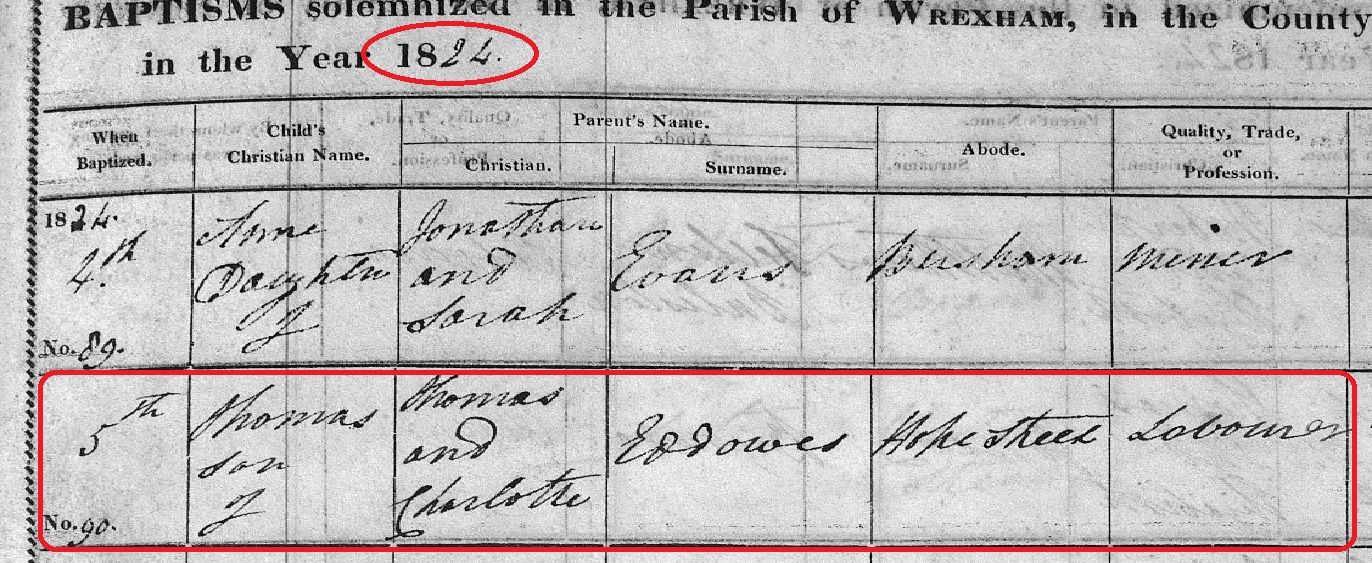 BAPTISMS solemnized in the Parish of WREXHAM, in the County
in the Year 1824.
When Baptized.
Child's Christian Name.
Parent's Name.
Christian.
Surname.
Abode.
Quality, Trade, or Profession.
1824.
4.th
No. 89.
Anne
Daughter
of
Jonathan
and
Sarah
Evans
Bersham
Miner
5th
No. 90.
Thomas
son
of
Thomas
and
Charlotte
Eddowes
Hope Street
Labourer